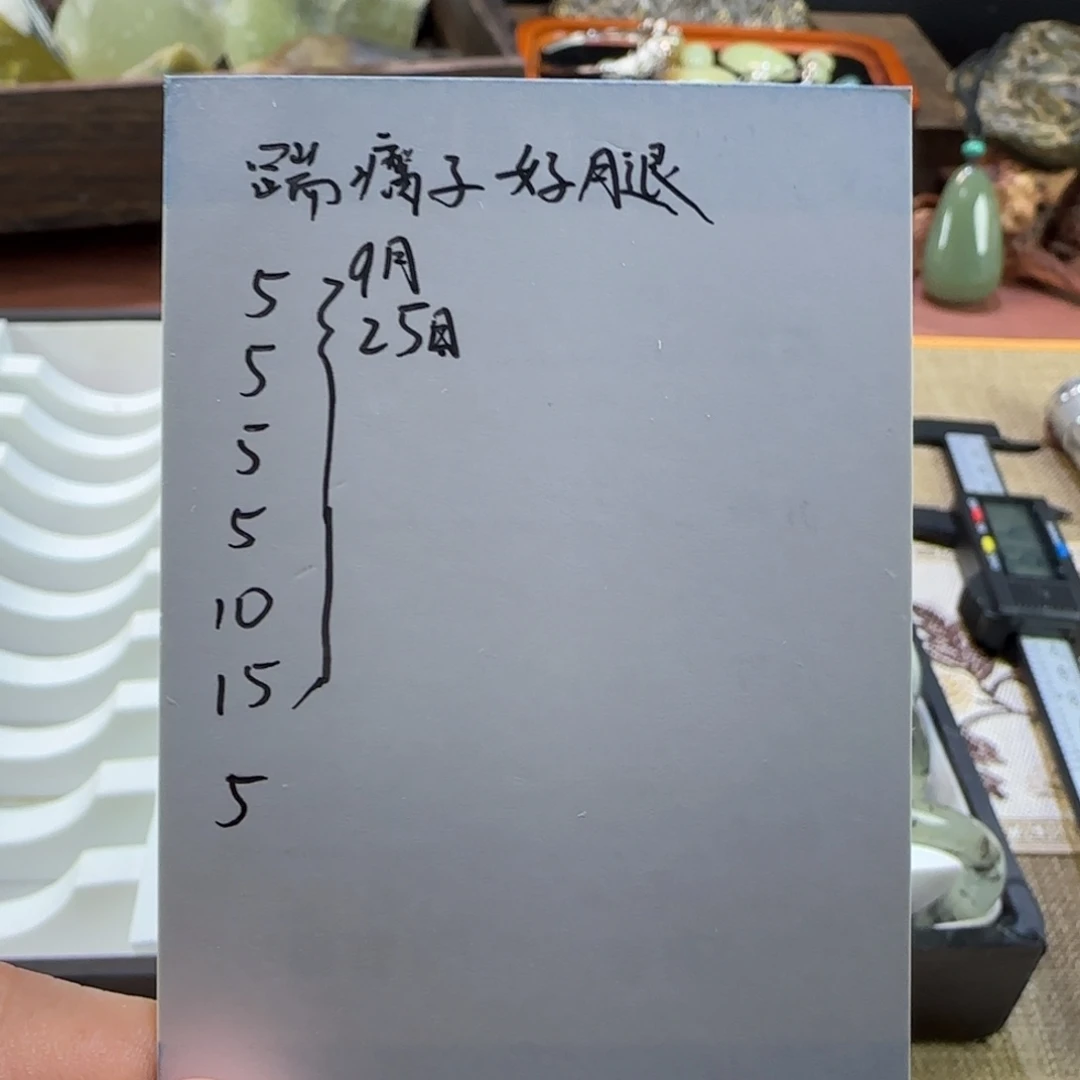 踹瘸子好腿
5
5
5
5
10
15
9月
25日
5